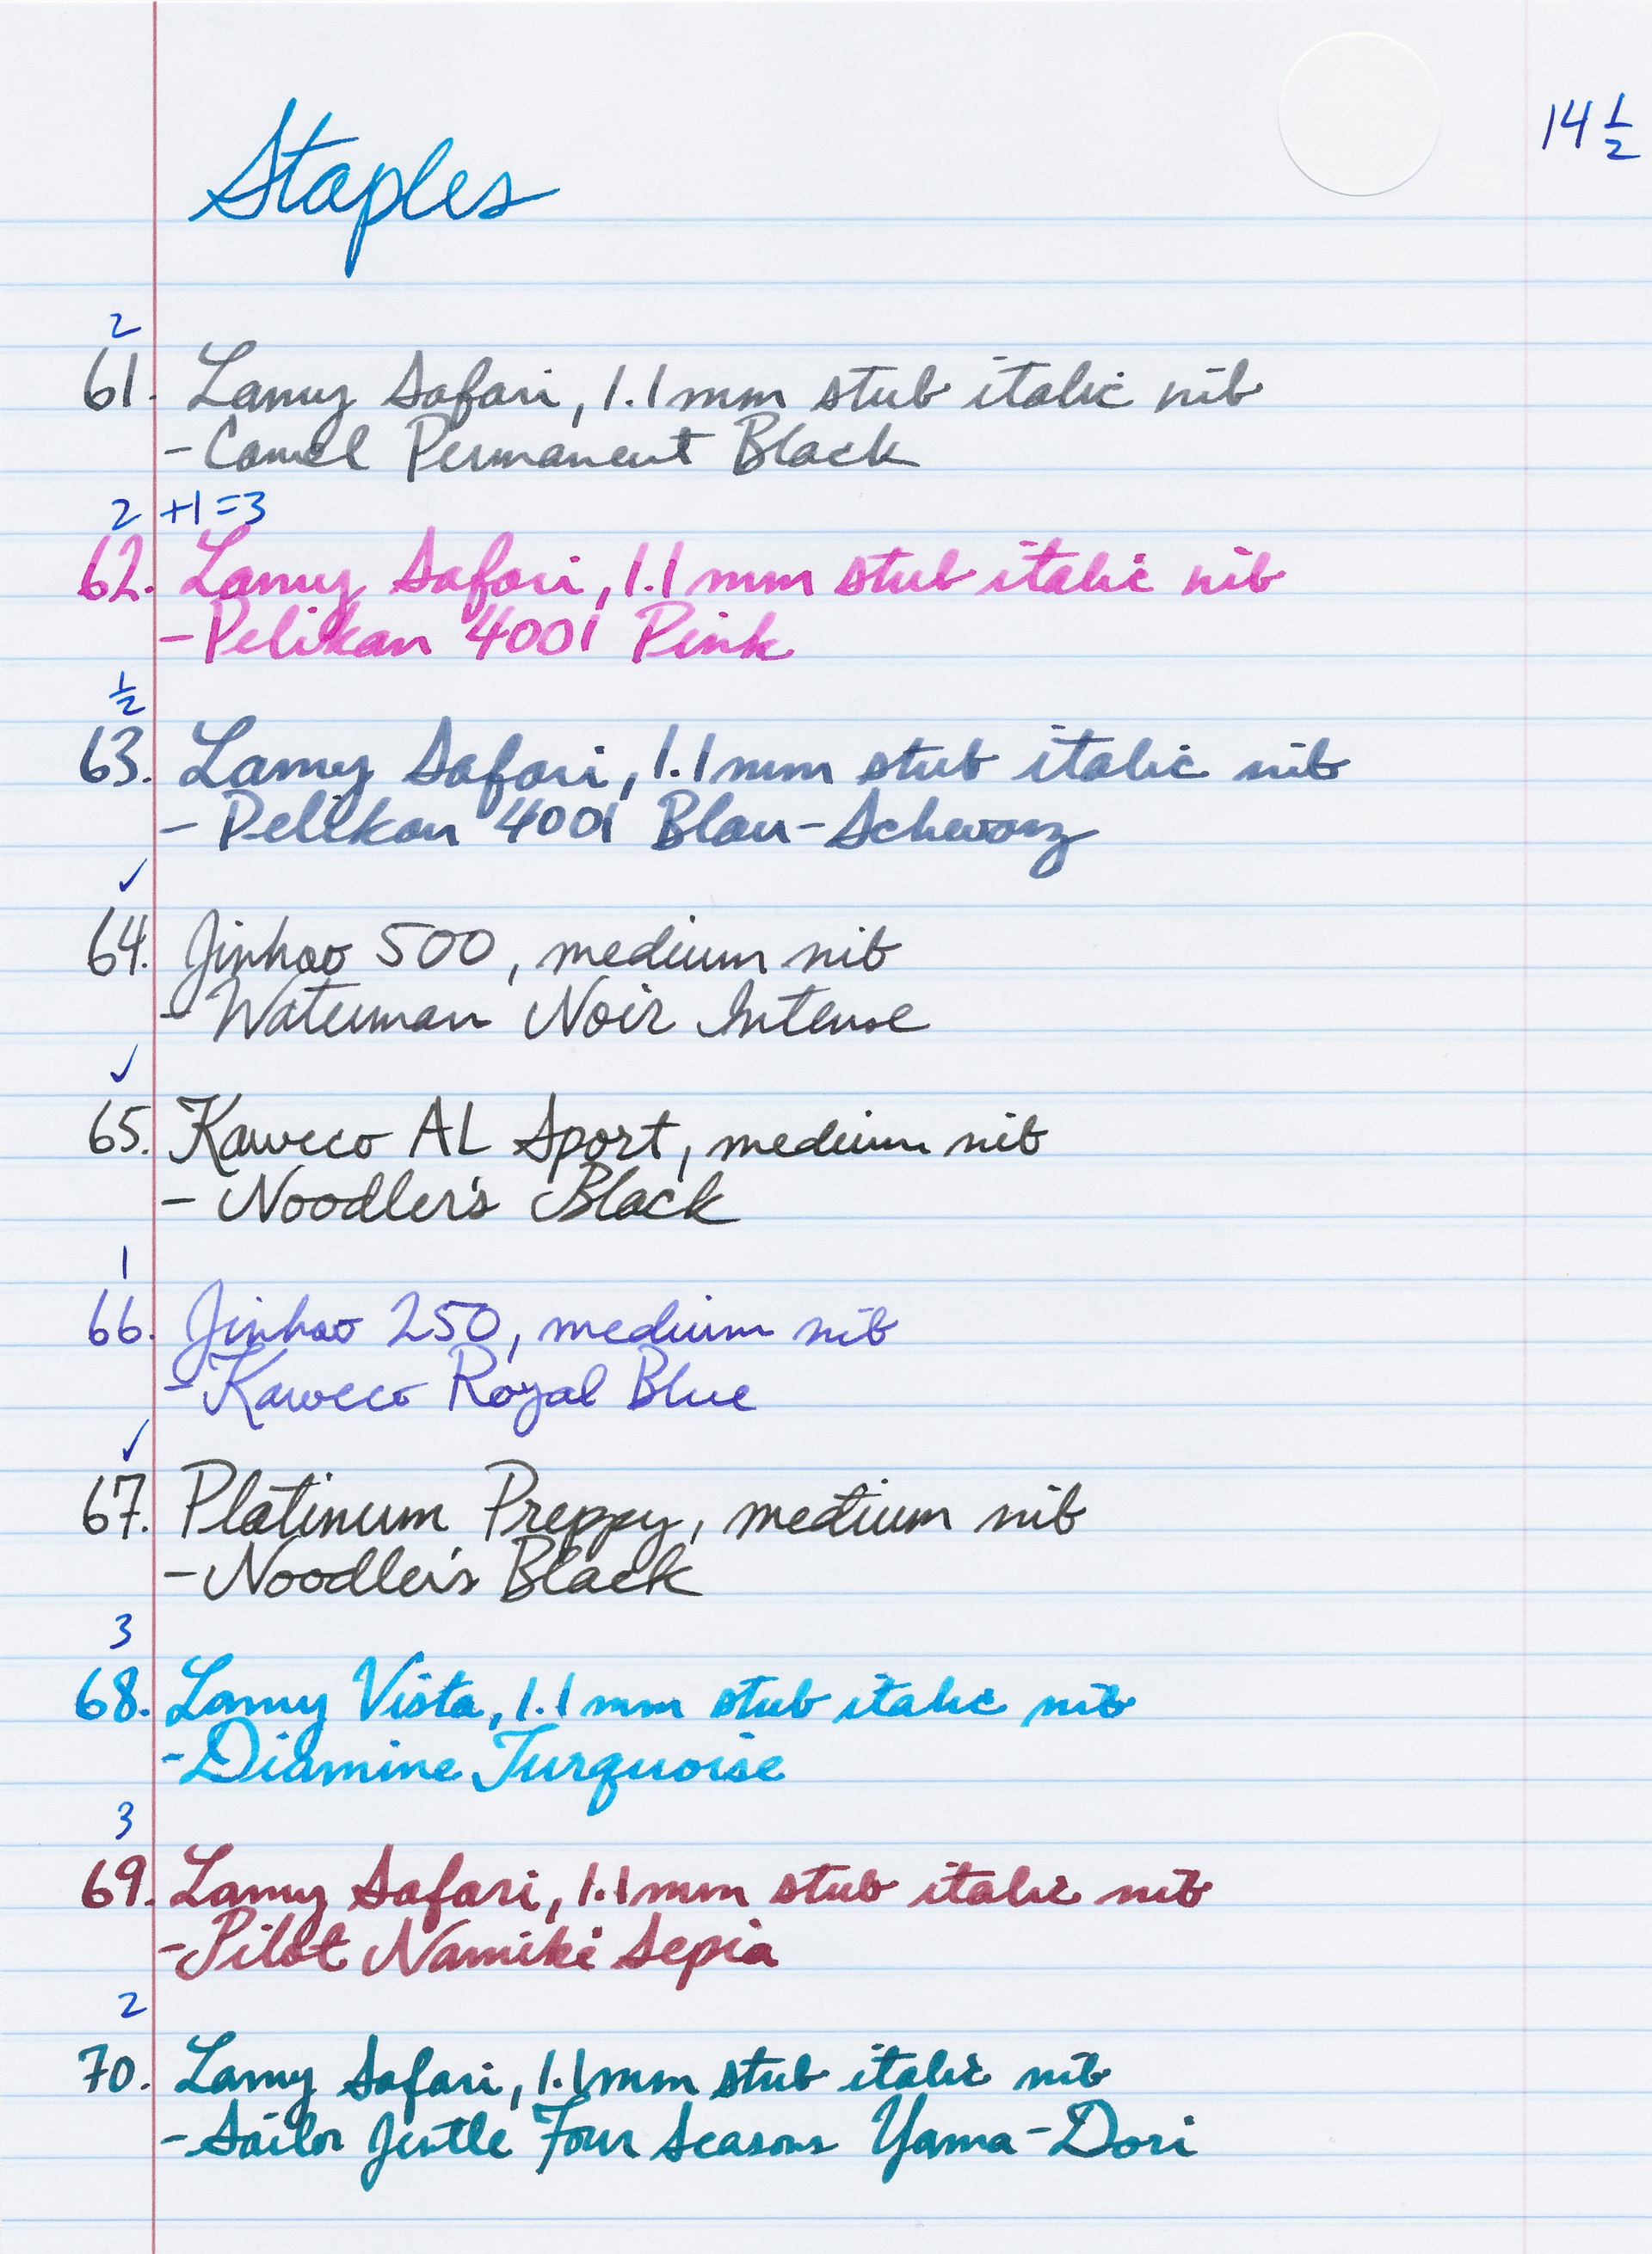 14 1/2
Staples
2
61. Lamy Safari, 1.1mm stub italic nib
- Camel Permanent Black
2 +1=3
62. Lamy Safari, 1.1mm stub italic nib
- Pelikan 4001 Pink
1/2
63. Lamy Safari, 1.1mm stub italic nib
- Pelikan 4001 Blau-Schwarz
✓
64. Jinhao 500, medium nib
- Waterman Noir Intense
✓
65. Kaweco AL Sport, medium nib
- Noodler's Black
1
66. Jinhao 250, medium nib
- Kaweco Royal Blue
✓
67. Platinum Preppy, medium nib
- Noodler's Black
3
68. Lamy Vista, 1.1mm stub italic nib
- Diamine Turquoise
3
69. Lamy Safari, 1.1mm stub italic nib
- Pilot Namiki Sepia
2
70. Lamy Safari, 1.1mm stub italic nib
- Sailor Jentle Four Seasons Yama-Dori